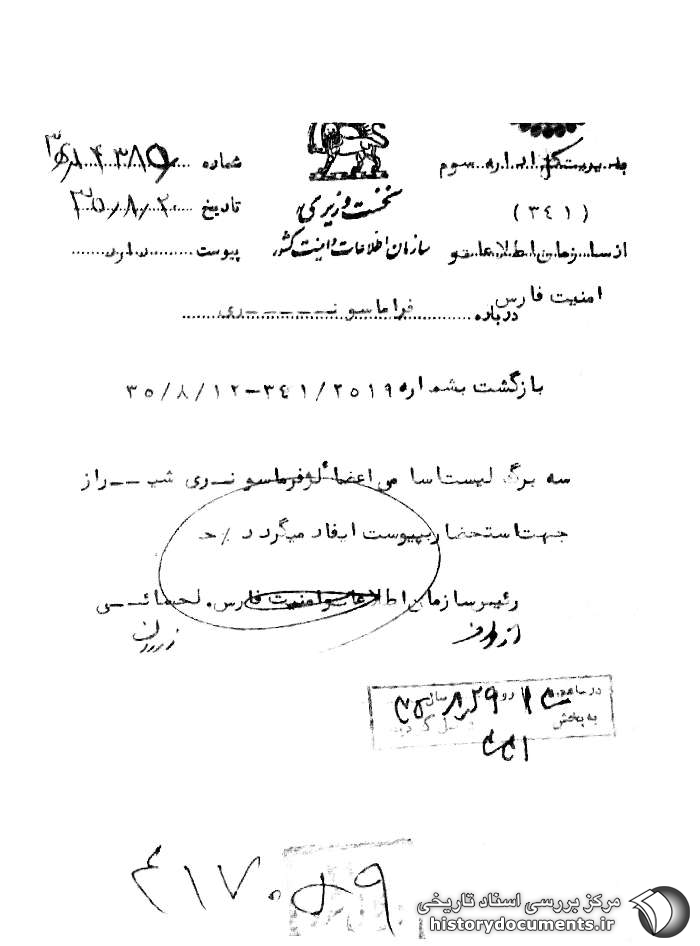 بمدیریت کل اداره سوم
(۳۴۱)
از سازمان اطلاعات و
امنیت فارس
درباره فراماسونـــــری
نخست وزیری
سازمان اطلاعات و امنیت کشور
شماره
تاریخ ۳۵/۸/۲۰
پیوست دارد
بازگشت بشماره ۳۴۱/۲۵۱۹-۳۵/۸/۱۲
سه برگ لیست اسامی اعضاء لژ فرماسونـری شیــراز
جهت استحضار بپیوست ایفاد میگردد /ح
رئیس سازمان اطلاعات و امنیت فارس. لحسائــی
از طرف
در ساعت روز ۲۹ ۸ سال ۳۵
به بخش
۳۴۱
۴۱۷۰۵۹
مرکز بررسی اسناد تاریخی
historydocuments.ir